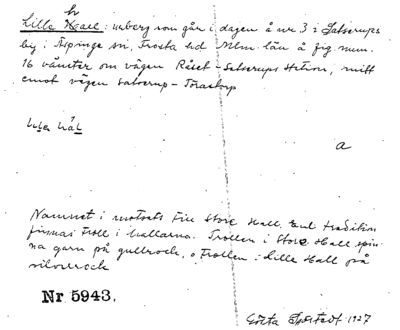 h
Lille Hall: urberg som går i dagen å nr 3 i Satserups
by i Äspinge sn, Frosta hd Mlm. län å fig. num.
16 väster om vägen Röset - Satserups station, mitt
emot vägen Satserup - Torastorp
lıla hål
a
Namnet i motsats till Store Hall. Enl. tradition
finnas Troll i hallarna. Trollen i Store Hall spin-
na garn på gullrock, o Trollen i Lille Hall på
silverrock
Nr 5943.
Gösta Sjöstedt 1927